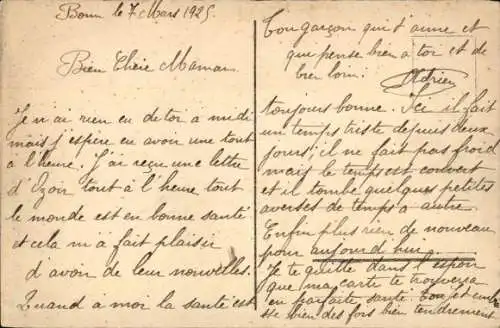 Bonn le 7 Mars 1925
Bien Chère Maman
Je n'ai rien eu de toi a midi
mais j'espère en avoir une tout
à l'heure. J'ai reçu une lettre
d'Ozoir tout à l'heure tout
le monde est en bonne santé
et cela m'a fait plaisir
d'avoir de leur nouvelles.
Quand a moi la santé est
toujours bonne. Ici il fait
un temps triste depuis deux
jours; il ne fait pas froid
mais le temps est couvert
et il tombe quelques petites
averses de temps a autre.
Enfin plus rien de nouveau
pour aujourd'hui
Je te quitte dans l'espoir
que ma carte te trouvera
en parfaite santé. Ton
t'e bien des fois bien tendrement
Ton garçon qui t'aime et
qui pense bien a toi et de
bien loin.
Adrien